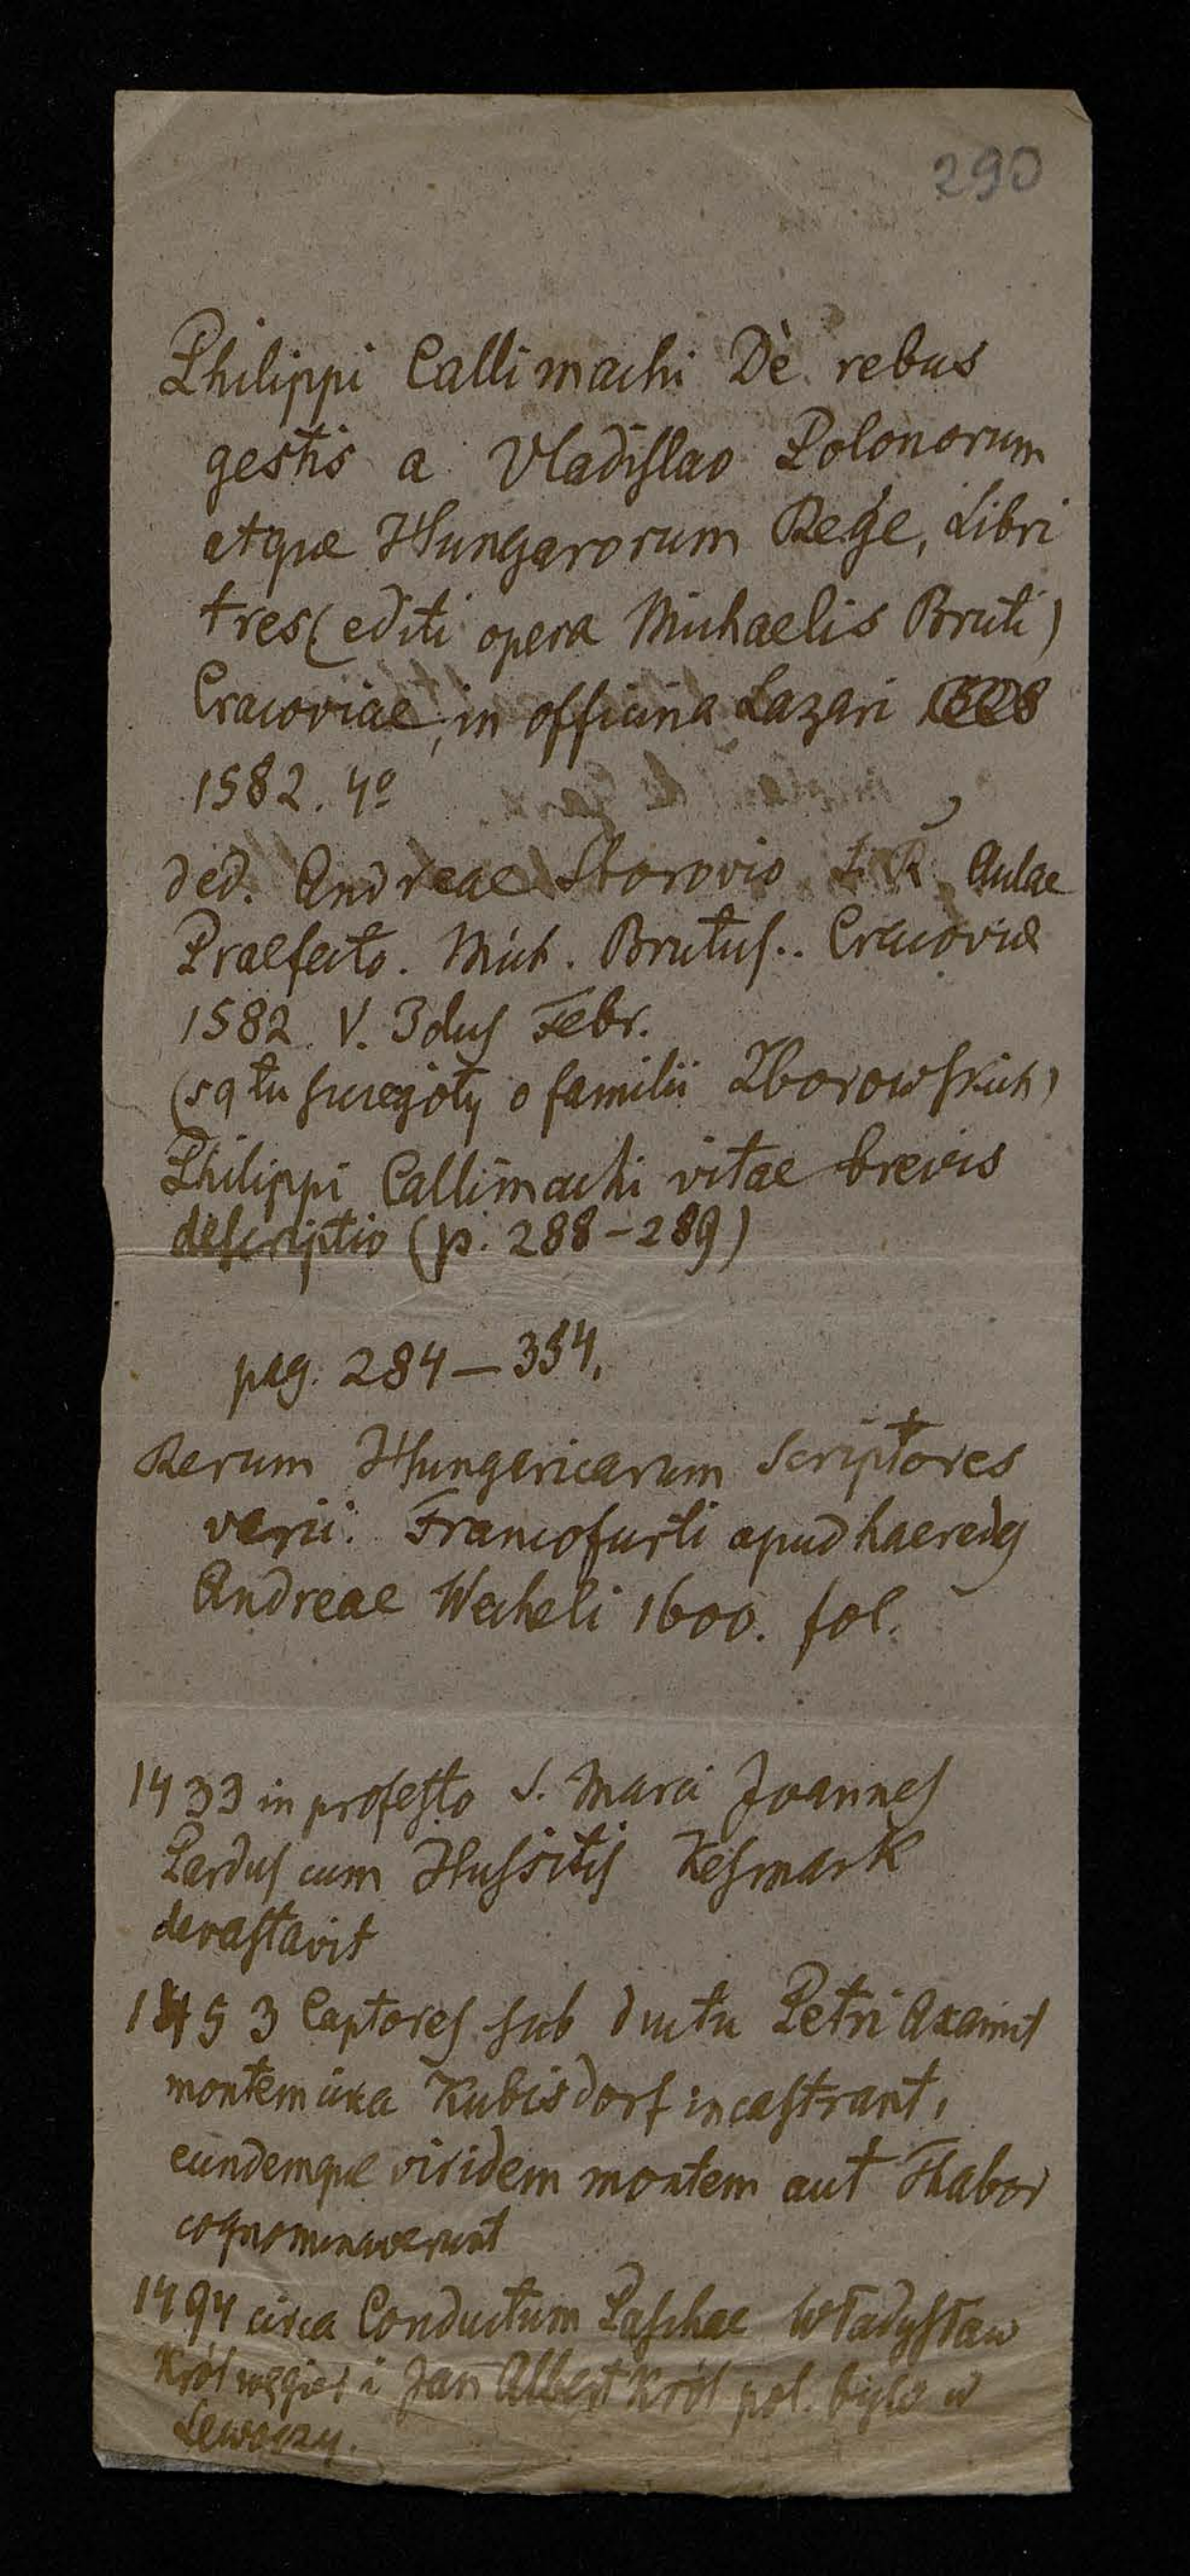 290
Philippi Callimachi De rebus
gestis a Vladislao Polonorum
atque Hungarorum Rege, Libri
tres (editi opera Michaelis Bruti)
Cracoviae, in officina Lazari
1582. 4º
ded. Andreae Sborovio Aulae
Praefecto. Mich. Brutus.. Cracoviae
1582. V. Idus Febr.
(są tu szczegóły o familii Zborowskich)
Philippi Callimachi vitae brevis
descriptio (p. 288-289)
pag. 284-354.
Rerum Hungaricarum Scriptores
varii. Francofurti apud haeredes
Andreae Wecheli 1600. fol.
1433 in profesto S. Marci Joannes
Pardus cum Hussitis Kesmark
devastavit
1453 Captores sub ductu Petri Axamit
montem Kubisdorf incastrant,
eundemque viridem montem aut Thabor
cognominaverunt
1494 circa Conductum Paschae Władysław
Król węgier i Jan Albert Król pol. było w
Lewoczy.